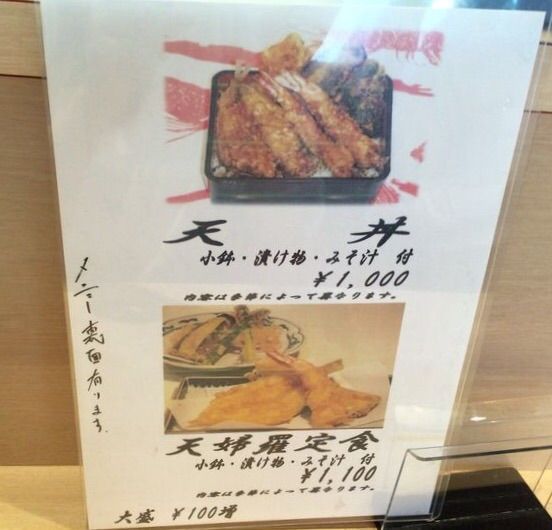 天丼
小鉢・漬け物・みそ汁 付
￥1,000
内容は季節によって異なります。
メニュー裏面有ります.
天婦羅定食
小鉢・漬け物・みそ汁 付
￥1,100
内容は季節によって異なります。
大盛 ￥100増